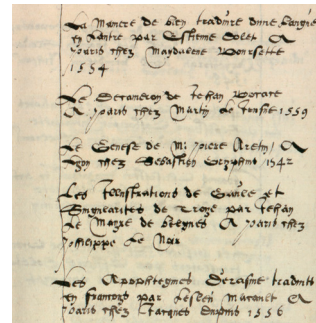 La Maniere de bien traduire dune Langue
en Lautre par Estienne Dolet A
paris chez Magdalene Boursette
1554
Le Decameron de Jehan Bocace
A paris chez Martin Le Jeusne 1559
Le Genese de M. Piere Aretin A
Lyon chez Sebastien Gryphius 1542
Les Illustrations de Gaule et
Singularites de Troye par Jehan
Le Maire de belges A paris chez
philippe Le Noir
Les Apophtegmes Derasme traduits
en francoys par Macault A
paris chez Jacques 1556